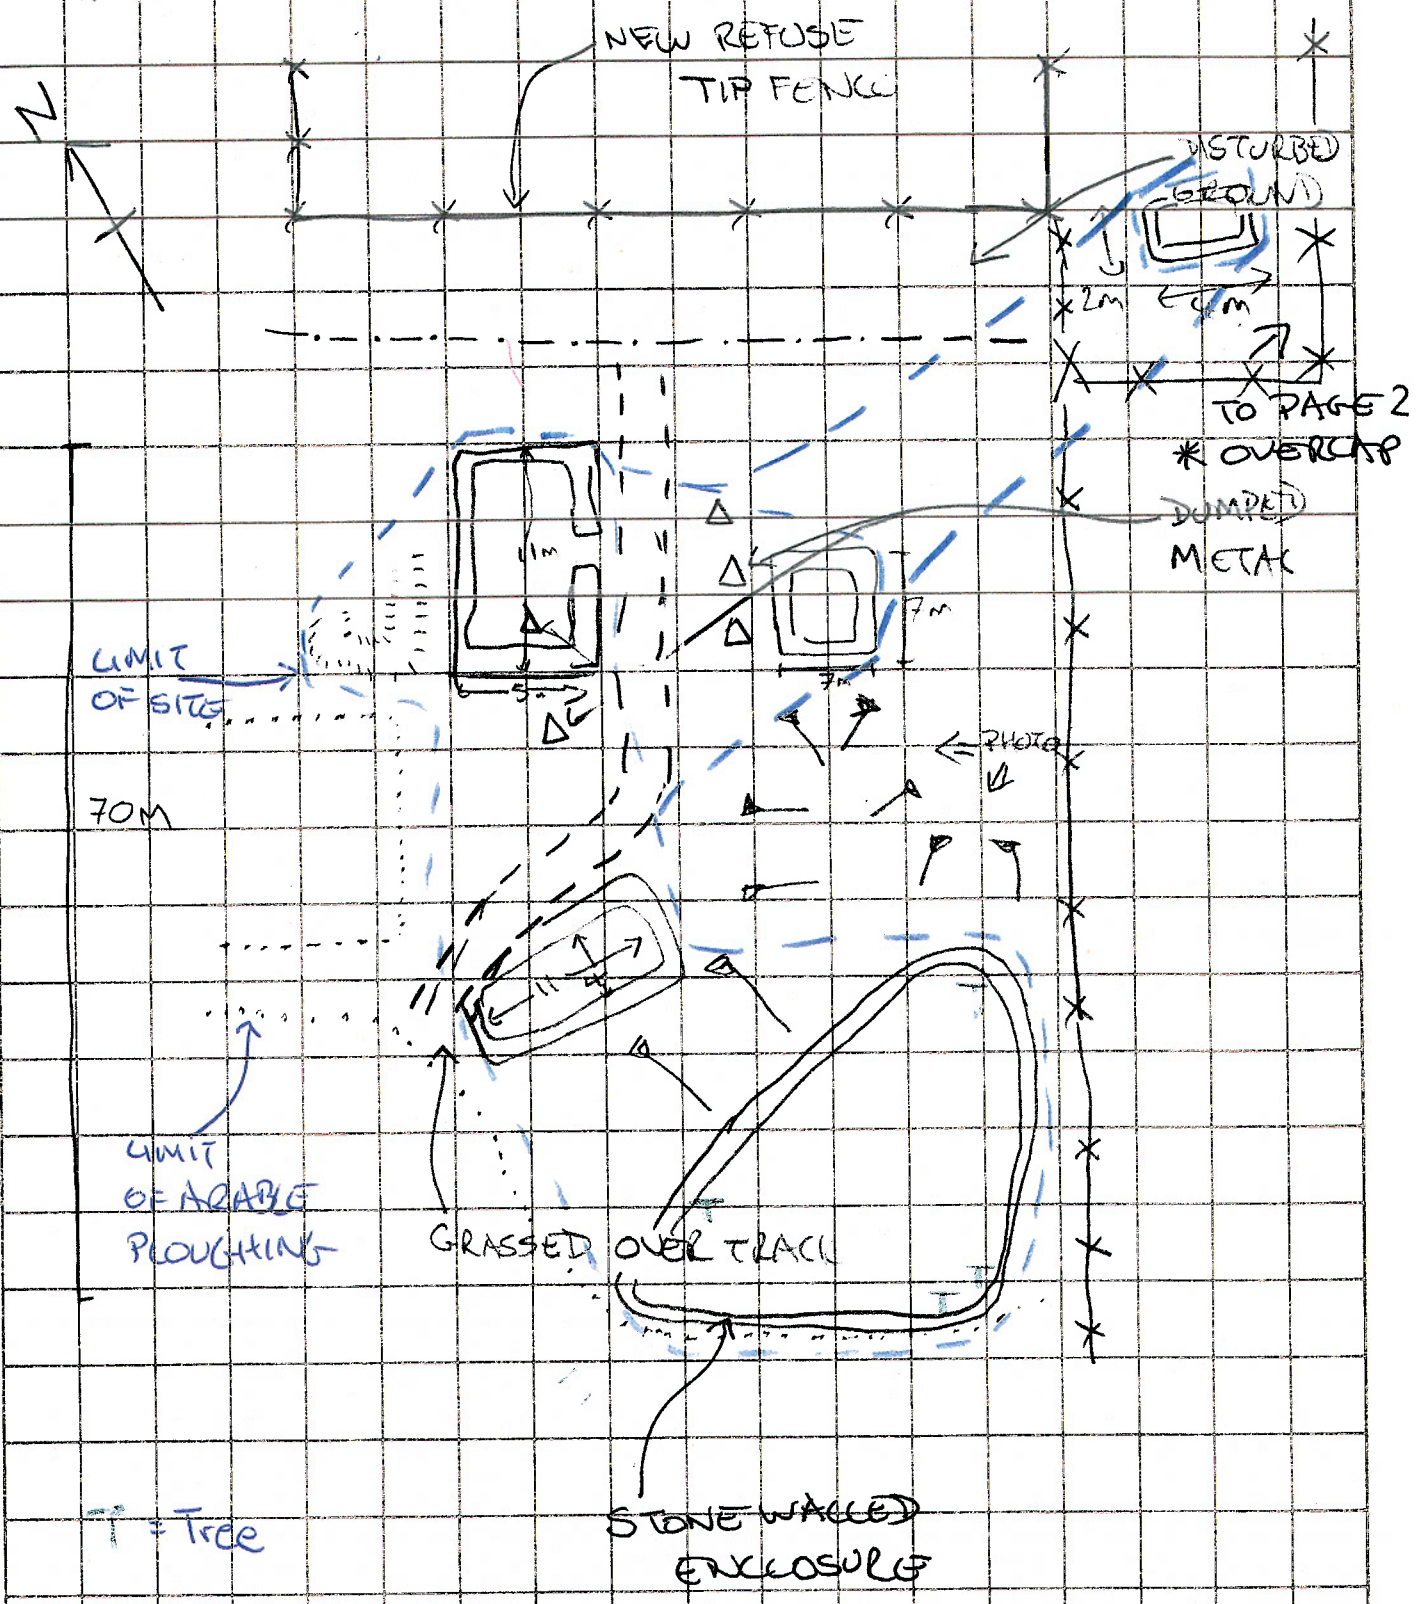 NEW REFUSE
TIP FENCE
N
DISTURBED
GROUND
2m
4m
TO PAGE 2
* OVERLAP
DUMPED
METAL
11m
7m
5m
7m
LIMIT
OF SITE
PHOTO
70M
11
4
LIMIT
OF ARABLE
PLOUGHING
GRASSED OVER TRACK
T
T
T
T
T = Tree
STONE WALLED
ENCLOSURE